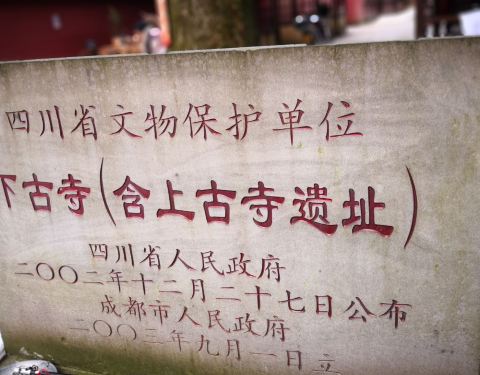 四川省文物保护单位
下古寺(含上古寺遗址)
四川省人民政府
二〇〇二年十二月二十七日公布
成都市人民政府
二〇〇三年九月一日立